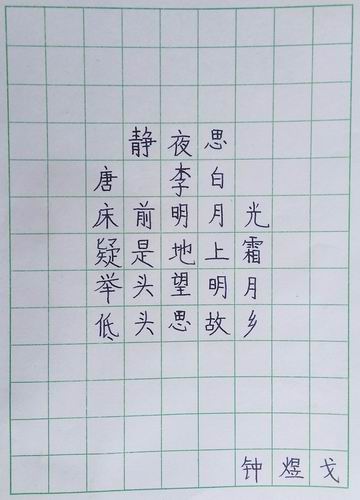 静夜思
唐 李白
床前明月光
疑是地上霜
举头望明月
低头思故乡
钟煜戈